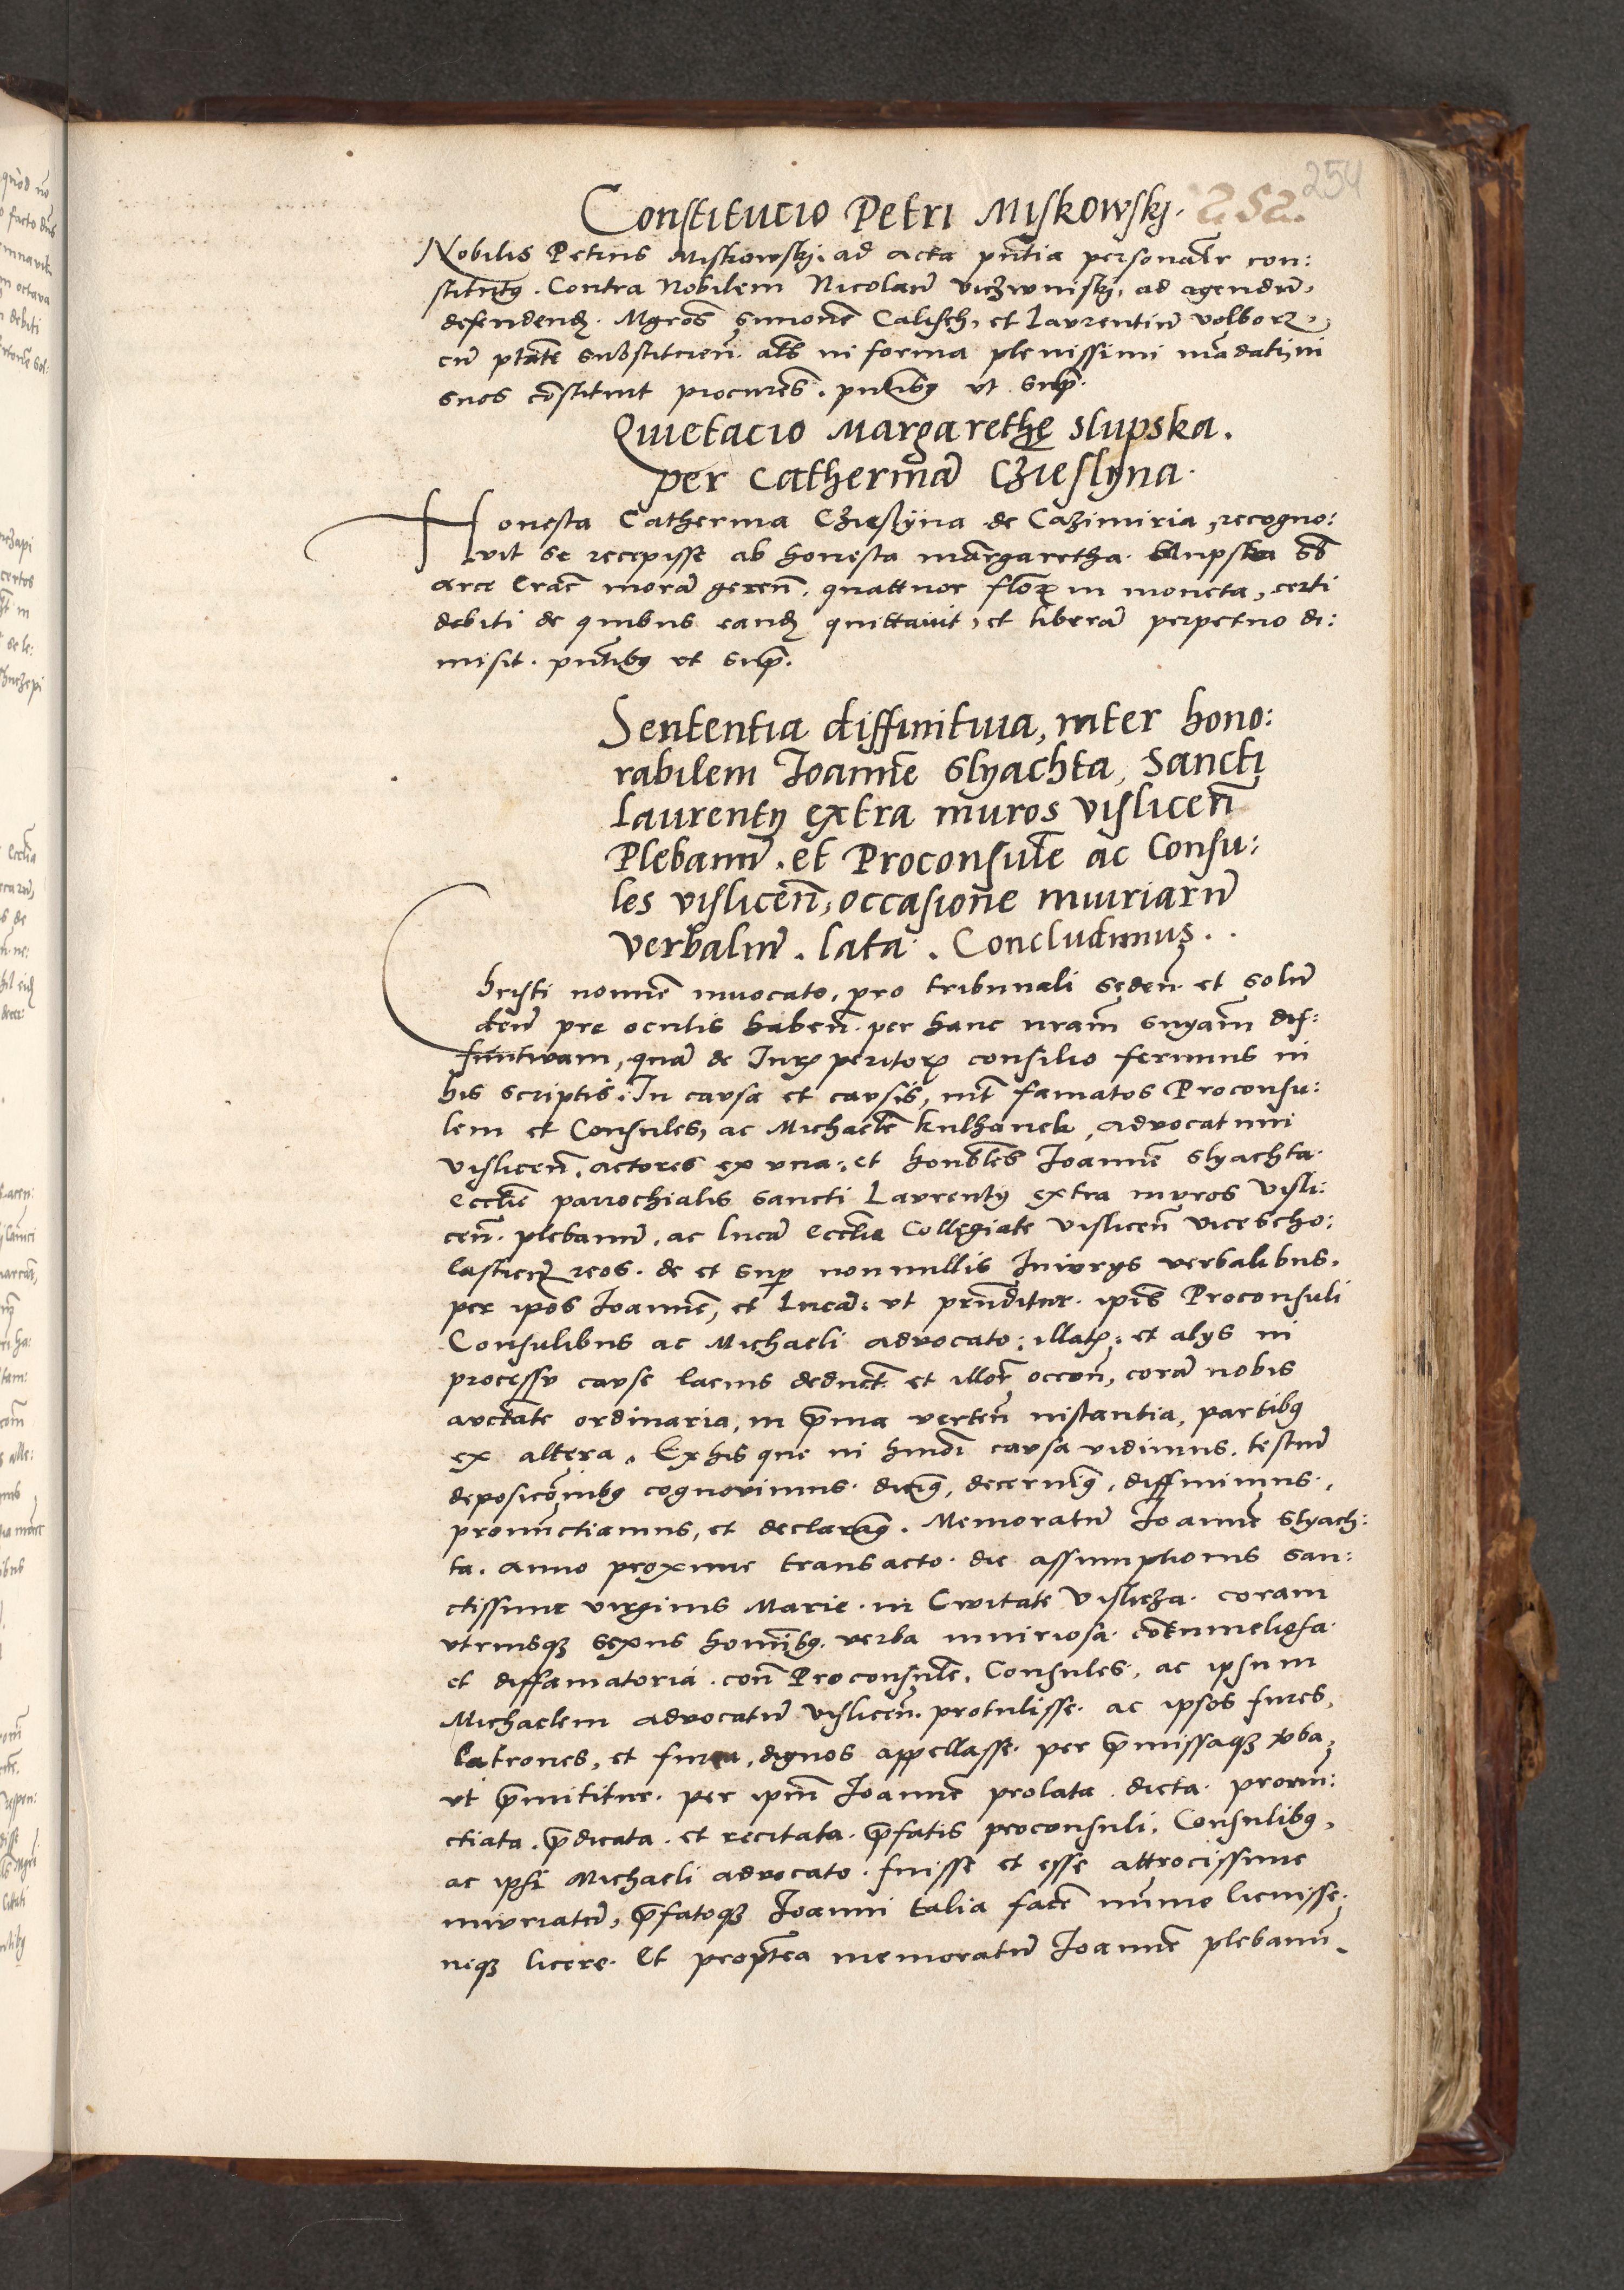 254
Constitucio Petri Miskowskj. 252.
Nobilis Petrus Miskowskj. ad acta pñtia personalr con:
stitutꝯ. Contra Nobilem Nicolaũ ad agendũ,
defendendꝝ. Mgros Simonẽ Calisch, et Laurentiũ Volborz,
cũ ptãte substituen̄. als in forma plenissimi mãdati, in
suos cõstituit procures. pñtibꝯ ut supᷓ.
Quietacio Margarethę Slupska.
per Catherinã Czieslyna.
Honesta Catherina Czieslyna de Cazimiria, recogno:
vit se recepisse ab honesta Margaretha Slupska sb
arce Crac̃ morã geren̄. quattuor floꝝ in moneta, certi
debiti de quibus eandꝫ quittavit, et liberã perpetuo di:
misit. pñtibꝯ ut supᷓ.
Sententia diffinitiua, inter hono:
rabilem Joannẽ Slyachta, Sancti
Laurentij extra muros vislicen̄
Plebanũ. et Proconsulẽ ac Consu:
les vislicen̄, occasione iniuriarũ
verbaliũ. lata. Concludimus..
Christi nomine inuocato, pro tribunali seden̄ et solũ
deũ pre oculis haben̄. per hanc nrãm snyãm dif:
finitivam, quã de Jurꝝ peritoꝝ consilio ferimus in
his scriptis. In causa et causis, int̃ famatos Proconsu:
lem et Consules, ac Michaelẽ Kulhanek, advocatum
vislicen̄. actores ex una: et honbles Joannẽ Slyachta
ecclie parrochialis sancti Laurentij extra muros visli:
cen̄. plebanũ. ac Lucã ecclie Collegiate vislicen̄ vicescho:
lasticũ reos. de et sup̱ nonnullis Iniurijs verbalibus.
per ipos Joannẽ, et Lucã. ut prñditur. ipis Proconsuli
Consulibus ac Michaeli advocato: illatꝭ: et alijs in
processu cause lacius deduct̃ et illoꝝ occõn, corã nobis
auctãte ordinaria, in pᷓma verten̄ instantia, partibꝯ
ex altera. Ex his que in hmõi causa vidimus. testiũ
deposicõnibꝯ cognovimus. dicimꝯ, decernimꝯ, diffinimus,
pronũctiamus, et declaramꝯ. Memoratũ Joannẽ Slyach:
ta. anno proxime transacto. die assumptionis san:
ctissime virginis Marie. in Civitate Vislicza. coram
utriusqꝫ sexus hominibꝯ. verba iniuriosa. contumeliosa
et diffamatoria. con̄ Proconsulẽ, Consules, ac ipsum
Michaelem advocatũ vislicen̄. protulisse. ac ipsos fures,
latrones, et furca, dignos appellasse. per pᷓmissaqꝫ vba,
ut pᷓmititur. per ipm̃ Joannẽ prolata. dicta. pronũ:
ctiata. pᷓdicata. et recitata. pᷓfatis proconsuli, Consulibꝯ,
ac ipsi Michaeli advocato. fuisse et esse attrocissime
iniuriatũ, pᷓfatoqꝫ Joanni talia facẽ minime licuisse.
neqꝫ licere. Et propterea memoratũ Joannẽ plebanũ.